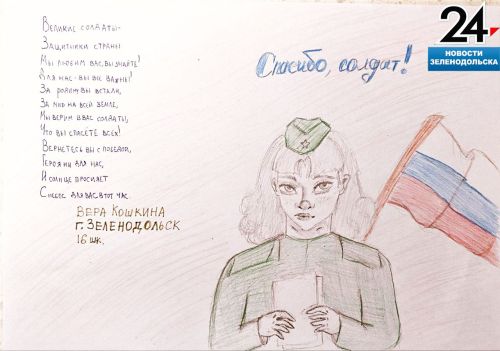 Великие солдаты-
Защитники страны
Мы любим вас, вы знайте!
Для нас - вы все важны!
За родину вы встали,
За мир на всей земле,
Мы верим в вас солдаты,
Что вы спасёте всех!
Вернетесь вы с победой,
Герои для нас,
И солнце просияет
для вас в тот час.
ВЕРА КОШКИНА
г. ЗЕЛЕНОДОЛЬСК
16 шк.
Спасибо, солдат!
24
НОВОСТИ
ЗЕЛЕНОДОЛЬСКА